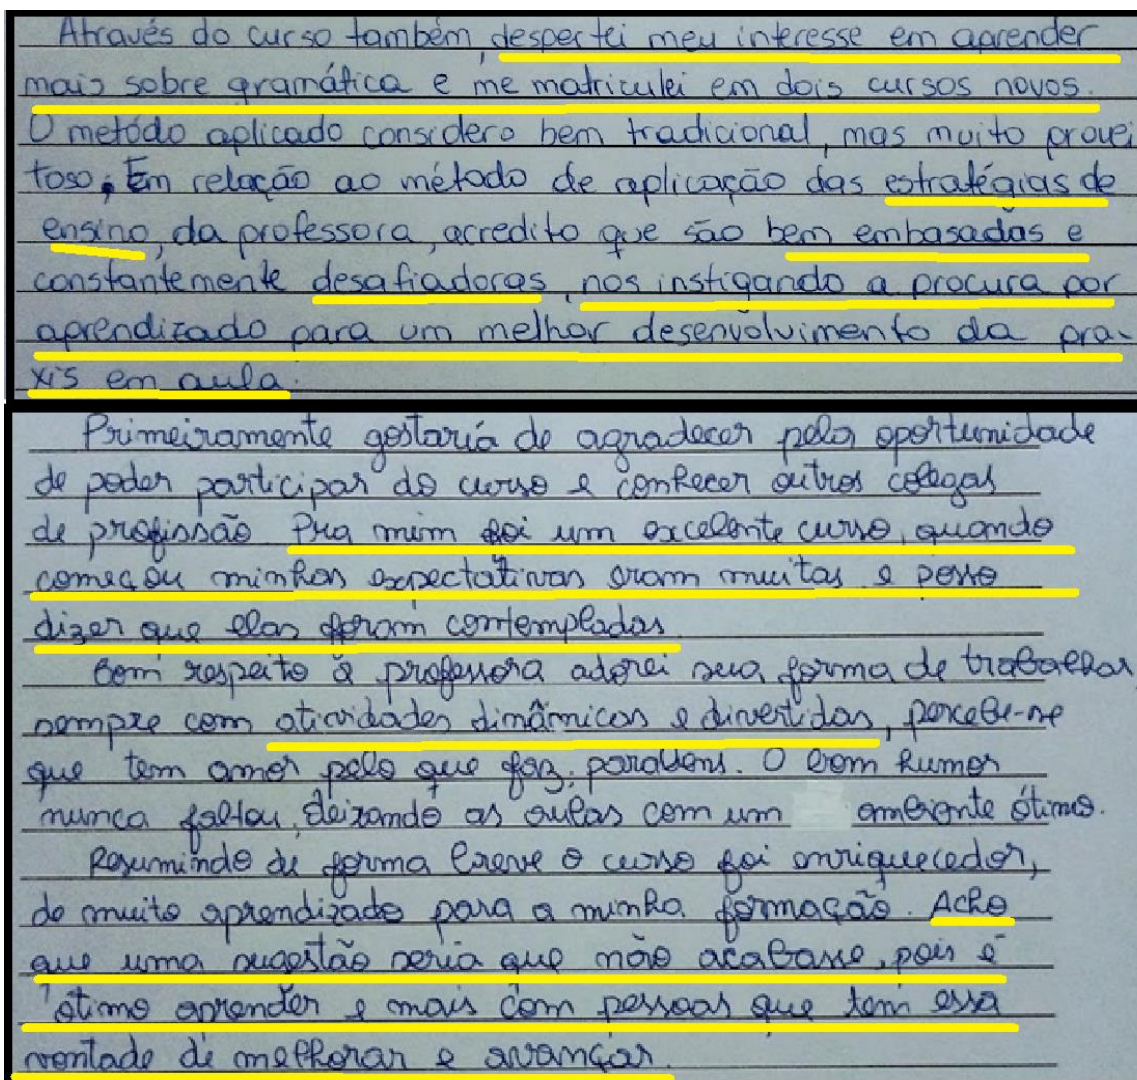 Através do curso também, despertei meu interesse em aprender
mais sobre gramática e me matriculei em dois cursos novos.
O metódo aplicado considero bem tradicional, mas muito provei
toso. Em relação ao método de aplicação das estratégias de
ensino, da professora, acredito que são bem embasadas e
constantemente desafiadoras, nos instigando a procura por
aprendizado para um melhor desenvolvimento da pra-
xis em aula.
Primeiramente gostaria de agradecer pela oportunidade
de poder participar do curso e conhecer outros colegas
de profissão Pra mim foi um excelente curso, quando
começou minhas expectativas eram muitas e posso
dizer que elas foram contempladas
Com respeito à professora adorei sua forma de trabalhar
sempre com atividades dinâmicas e divertidas, percebe-se
que tem amor pelo que faz, parabens. O bom humor
nunca faltou, deixando as aulas com um ambiente ótimo.
Resumindo de forma breve o curso foi enriquecedor,
de muito aprendizado para a minha formação. Acho
que uma sugestão seria que não acabasse, pois é
ótimo aprender e mais com pessoas que tem essa
vontade de melhorar e avançar.